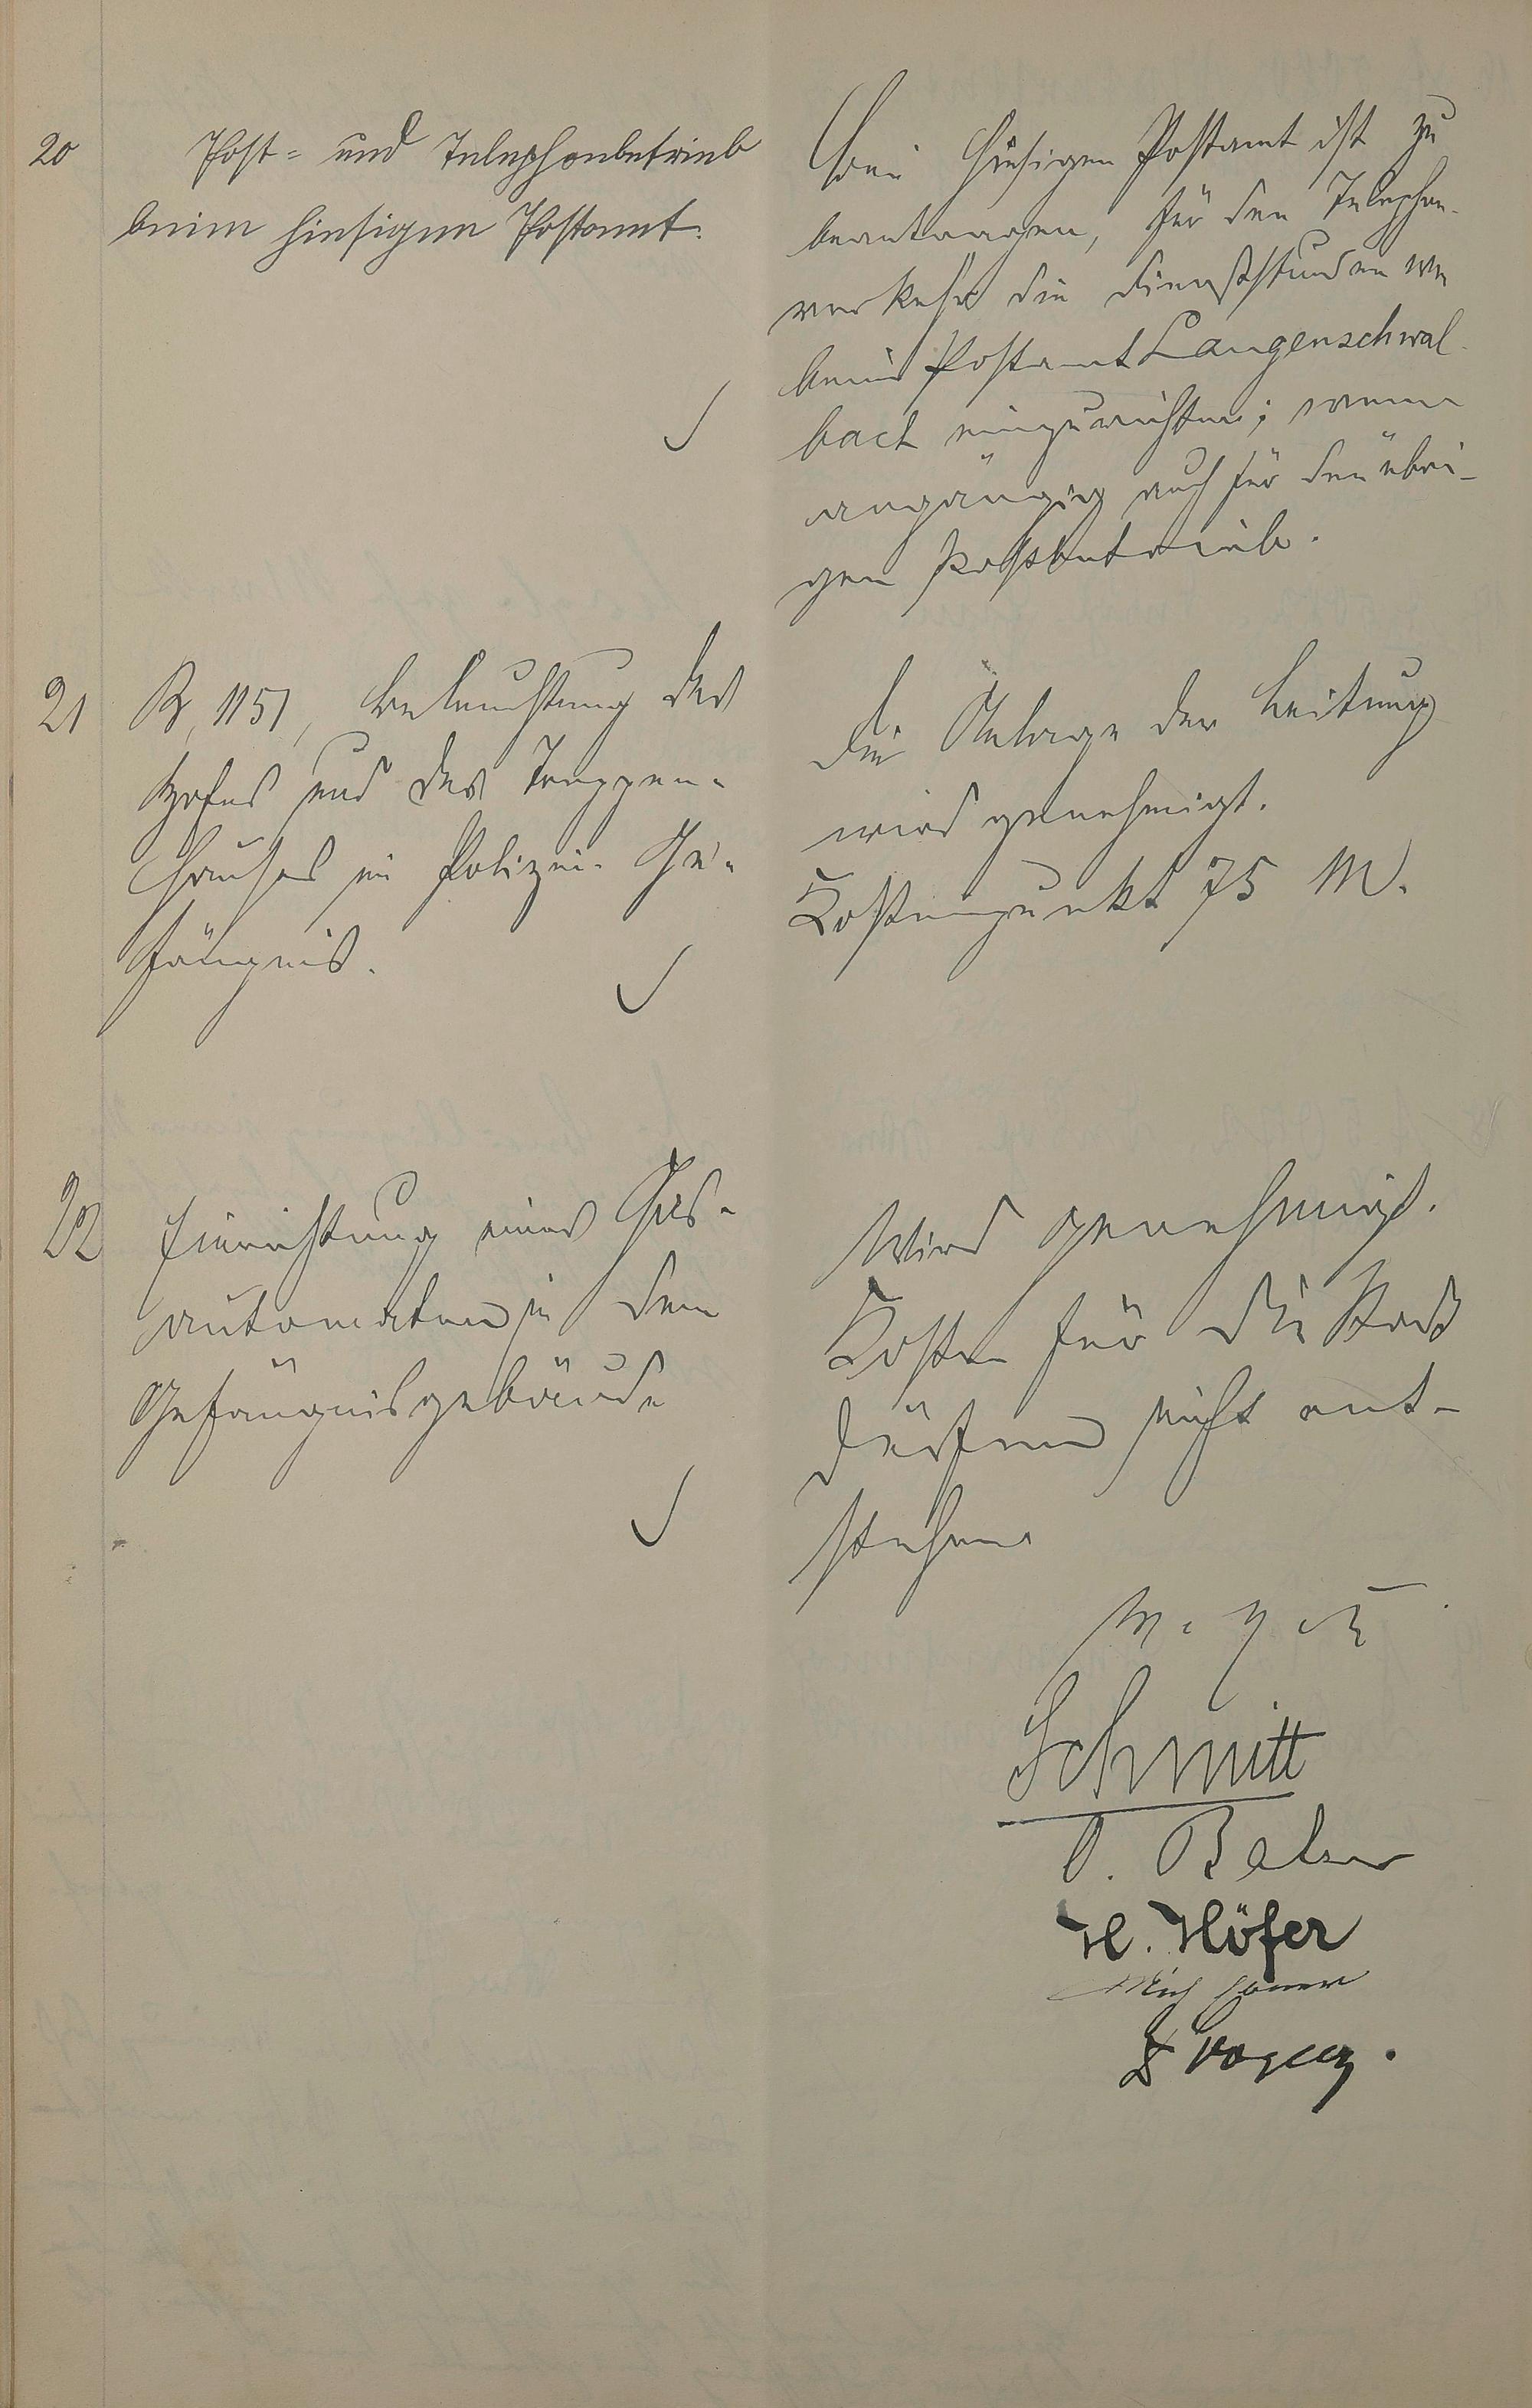 20
Post- und Telephonbetrieb
beim hiesigen Postamt.
Beim hiesigen Postamt ist zu
beantragen, für den Telephon-
verkehr die Dienststunden wie
beim Postamt Langenschwal-
bach einzurichten; wenn
angängig auch für den übri-
gen Postbetrieb.
21
R, 1151, Beleuchtung des
Hofes und des Treppen-
hauses im Polizei-Ge-
fängnis.
Die Anlage der Leitung
wird genehmigt.
Kostenpunkt 75 M.
22
Einrichtung eines Gas-
automaten in dem
Gefängnisgebäude
Wird genehmigt.
Kosten für die Stadt
dürfen nicht ent-
stehen
Schmitt
H. Höfer